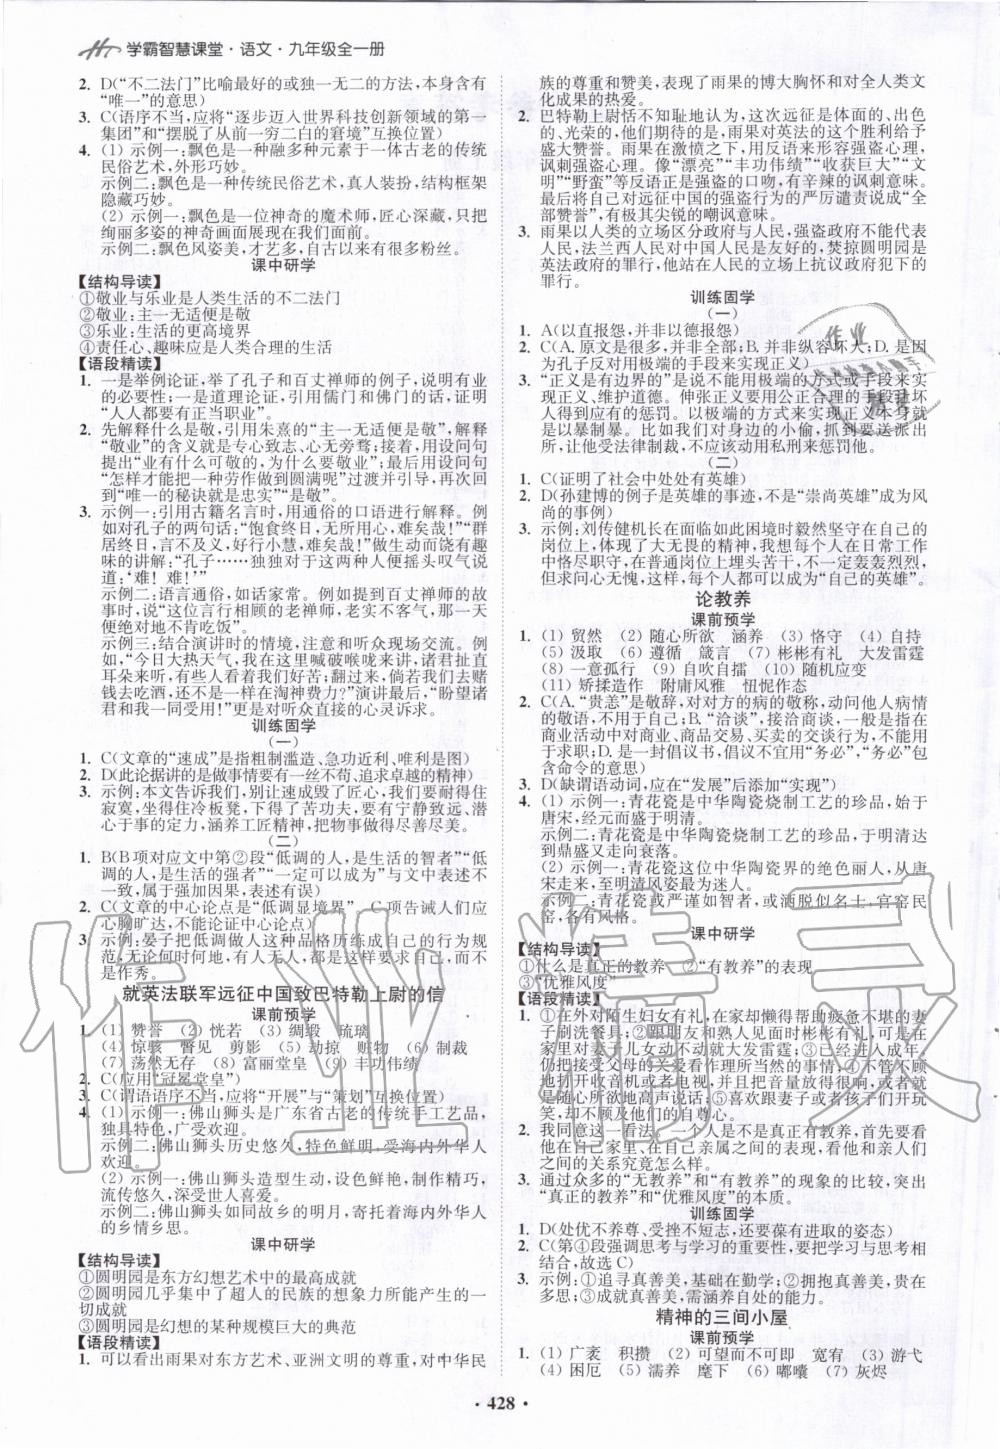 学霸智慧课堂·语文·九年级全一册
2. D(“不二法门”比喻最好的或独一无二的方法,本身含有
“唯一”的意思)
3. C(语序不当,应将“逐步迈入世界科技创新领域的第一
集团”和“摆脱了从前一穷二白的窘境”互换位置)
4. (1) 示例一:飘色是一种融多种元素于一体的古老的传统
民俗艺术,外形巧妙。
示例二:飘色是一种传统民俗艺术,真人装扮,结构框架
隐藏巧妙。
(2) 示例一:飘色是一位神奇的魔术师,匠心深藏,只把
绚丽多姿的一面展现在我们面前。
示例二:飘色风姿美,才艺多,自古以来有很多粉丝。
课中研学
【结构导读】
①敬业与乐业是人类生活的不二法门
②敬业:主一无适便是敬
③乐业:生活的更高境界
④责任心、趣味应是人类合理的生活
【语段精读】
1. 一是举例论证,举了孔子和百丈禅师的例子,说明有业
的必要性;一是道理论证,引用儒门和佛门的话,证明
“人人都要有正当职业”。
2. 先解释什么是敬,引用朱熹的“主一无适便是敬”,解释
“敬业”的含义就是专心致志、心无旁骛;接着,用设问句
提出“业有什么可敬的,为什么要敬业”;最后用设问句
“怎样才能把一种劳作做到圆满呢”过渡,并引出结论
“唯一的秘诀就是忠实”“是敬”。
3. 示例一:引用古籍名言时,用通俗的口语进行解释。例
如对孔子的两句话:“饱食终日,无所用心,难矣哉!”“群
居终日,言不及义,好行小慧,难矣哉!”做生动而饶有趣
味的讲解:“孔子……独独对于这两种人便摇头叹气
说道:‘难! 难!’”
示例二:语言通俗,如话家常。例如提到百丈禅师的故
事时,说“这位言行相顾的老禅师,老实不客气,那一天
便绝对不肯吃饭”。
示例三:结合演讲时的情境,注意和听众现场交流。例
如,“今日大热天气,我在这里喊破喉咙来讲,诸君扯直
耳朵来听,有些人看着我们好苦;翻过来,倘若我们去赌
钱去吃酒,还不是一样在淘神费力?”演讲最后,“盼望诸
君和我一同受用!”更是对听众直接的心灵诉求。
训练固学
(一)
1. C(文章的“速成”是指粗制滥造、急功近利、唯利是图)
2. D(此论据讲的是做事情要有一丝不苟、追求卓越的精神)
3. 示例:本文告诉我们,别让速成毁了匠心,我们要耐得住
寂寞,坐得住冷板凳,下得了苦功夫,要有宁静致远、潜
心于事的定力,涵养工匠精神,把事物做得尽善尽美。
(二)
1. B(B项对应文中第②段“低调的人,是生活的智者”“低
调的人,是生活的强者”,“一定可以成为”与文中表述不
一致,属于强加因果,表述有误)
2. C(文章的中心论点是“低调显境界”,C项告诫人们应
心胸旷达,不能论证中心论点)
3. 示例:晏子把低调做人这种品格历练成自己的行为规
范,无论何时何地,有人无人,都是这样要求自己,而不
是作秀。
就英法联军远征中国致巴特勒上尉的信
课前预学
1. (1) 赞誉 (2) 恍若 (3) 绸缎 琉璃
(4) 惊骇 瞥见 剪影 (5) 动掠 赃物 (6) 制裁
(7) 荡然无存 (8) 富丽堂皇 (9) 丰功伟绩
2. C(应用“冠冕堂皇”)
3. C(谓语语序不当,应将“开展”与“策划”互换位置)
4. (1) 示例一:佛山狮头是广东省古老的传统手工艺品,
独具特色,广受欢迎。
示例二:佛山狮头历史悠久,特色鲜明,受海内外华人
欢迎。
(2) 示例一:佛山狮头造型生动,设色鲜艳,制作精巧,
流传悠久,深受大家喜爱。
示例二:佛山狮头如故乡的明月,寄托着海内外华人
的乡情乡思。
课中研学
【结构导读】
①圆明园是东方幻想艺术中的最高成就
②圆明园几乎集中了超人的民族的想象力所能产生的一
切成就
③圆明园是幻想的某种规模巨大的典范
【语段精读】
1. 可以看出雨果对东方艺术、亚洲文明的尊重,对中华民
族的尊重和赞美,表现了雨果的博大胸怀和对全人类文
化成果的热爱。
2. 巴特勒上尉恬不知耻地认为,这次远征是体面的、出色
的、光荣的,他们期待的是,雨果对英法的这个胜利给予
盛大赞誉。雨果在激愤之下,用反语讽刺强盗行径,
讽刺强盗心理。像“漂亮”“丰功伟绩”“收获巨大”“文
明”“野蛮”等反语正是强盗的口吻,有辛辣的讽刺意味。
最后将自己对远征中国的强盗行为的严厉谴责说成“全
部赞誉”,有极其尖锐的嘲讽意味。
3. 雨果以人类的立场区分政府与人民,强盗政府不能代表
人民,法兰西人民对中国人民是友好的,焚掠圆明园是
英法政府的罪行,他站在人民的立场上抗议政府犯下的
罪行。
训练固学
(一)
1. A(以直报怨,并非以德报怨)
2. C(A. 原文是很多,并非全部;B. 并非纵容坏人;D. 是因
为采用极端的手段来实现正义)
3. “正义是有边界的”是说不能用极端的方式或手段来实现
正义、维护道德。伸张正义要用公正合理的手段让坏
人得到应有的惩罚。以极端的方式来实现正义本身就
是以暴制暴。比如我们对身边的小偷,抓到要送派出
所,让他受法律制裁,不能以私刑来惩罚他。
(二)
1. C(证明了社会中处处有英雄)
2. D(孙建博的例子是英雄的事迹,不是“崇尚英雄”成为风
尚的事例)
3. 示例:刘传健机长在面临如此困境时毅然坚守在自己的
岗位上,体现了大无畏的精神,我想所有人在日常工作
中恪尽职守,在普通岗位上埋头苦干,不一定轰轰烈烈,
但求问心无愧,这样,每个人都会成为“自己的英雄”。
论教养
课前预学
1. (1) 贸然 (2) 随心所欲 涵养 (3) 恪守 (4) 自持
(5) 汲取 (6) 遵循 箴言 (7) 彬彬有礼 大发雷霆
(8) 一意孤行 (9) 自吹自擂 (10) 随机应变
(11) 矫揉造作 附庸风雅 忸怩作态
2. C(A. “贵恙”是敬辞,对对方的病的敬称,动问他人病情
的敬语,不用于自己;B. “洽谈”,接洽商谈,一般是指在
商业活动中对商业、商品交易、买卖的交谈行为,不能用
于求职;D. 是一封倡议书,倡议不宜用“务必”,“务必”包
含命令的意思)
3. D(缺谓语动词,应在“发展”后添加“实现”)
4. (1) 示例一:青花瓷是中华陶瓷烧制工艺的珍品,始于
唐宋,经元而盛于明清。
示例二:青花瓷是中华陶瓷烧制工艺的珍品,于明清
达到鼎盛又走向衰落。
(2) 示例一:青花瓷这位中华陶瓷界的绝色丽人,从唐
宋走来,至明清风姿最为优美。
示例二:青花瓷或严谨如智者,或洒脱似名士,官窑民
窑,各有风格。
课中研学
【结构导读】
①什么是真正的教养 ②“有教养”的表现
③“优雅风度”
【语段精读】
1. ①在外对陌生妇女有礼,在家却懒得帮助疲惫不堪的妻
子刷洗餐具;②跟朋友和熟人见面时彬彬有礼,可是在
家里对妻子儿女动不动就大发雷霆;③已经成年,
仍把接受父母的关爱看作理所当然的事情;④不管不顾
地打开收音机或者电视,并且把音量放得很高,或者就
是随心所欲地高声说话;⑤喜欢跟妻子或者孩子们开玩
笑,却不顾及他们的自尊心。
2. 我同意这一看法。一个人是不是真正有教养,首先要看
他在自己家里、在自己亲属之间的表现,看他和亲人们
之间的关系究竟怎么样。
3. 通过众多的“无教养”和“有教养”的现象的比较,突出
“真正的教养”和“优雅风度”的本质。
训练固学
1. D(处优不养尊、受挫不短志,还要葆有进取的姿态)
2. C(第④段强调思考与学习的重要性,要把学习与思考相
结合,故选C)
3. 示例:①追寻真善美,基础在勤学;②拥抱真善美,贵在
多思;③成就真善美,需涵养自处的能力。
精神的三间小屋
课前预学
1. (1) 广袤 积攒 (2) 可望而不可即 宽宥 (3) 游弋
(4) 困厄 (5) 濡养 麾下 (6) 嘟囔 (7) 灰烬
· 428 ·
作业精灵